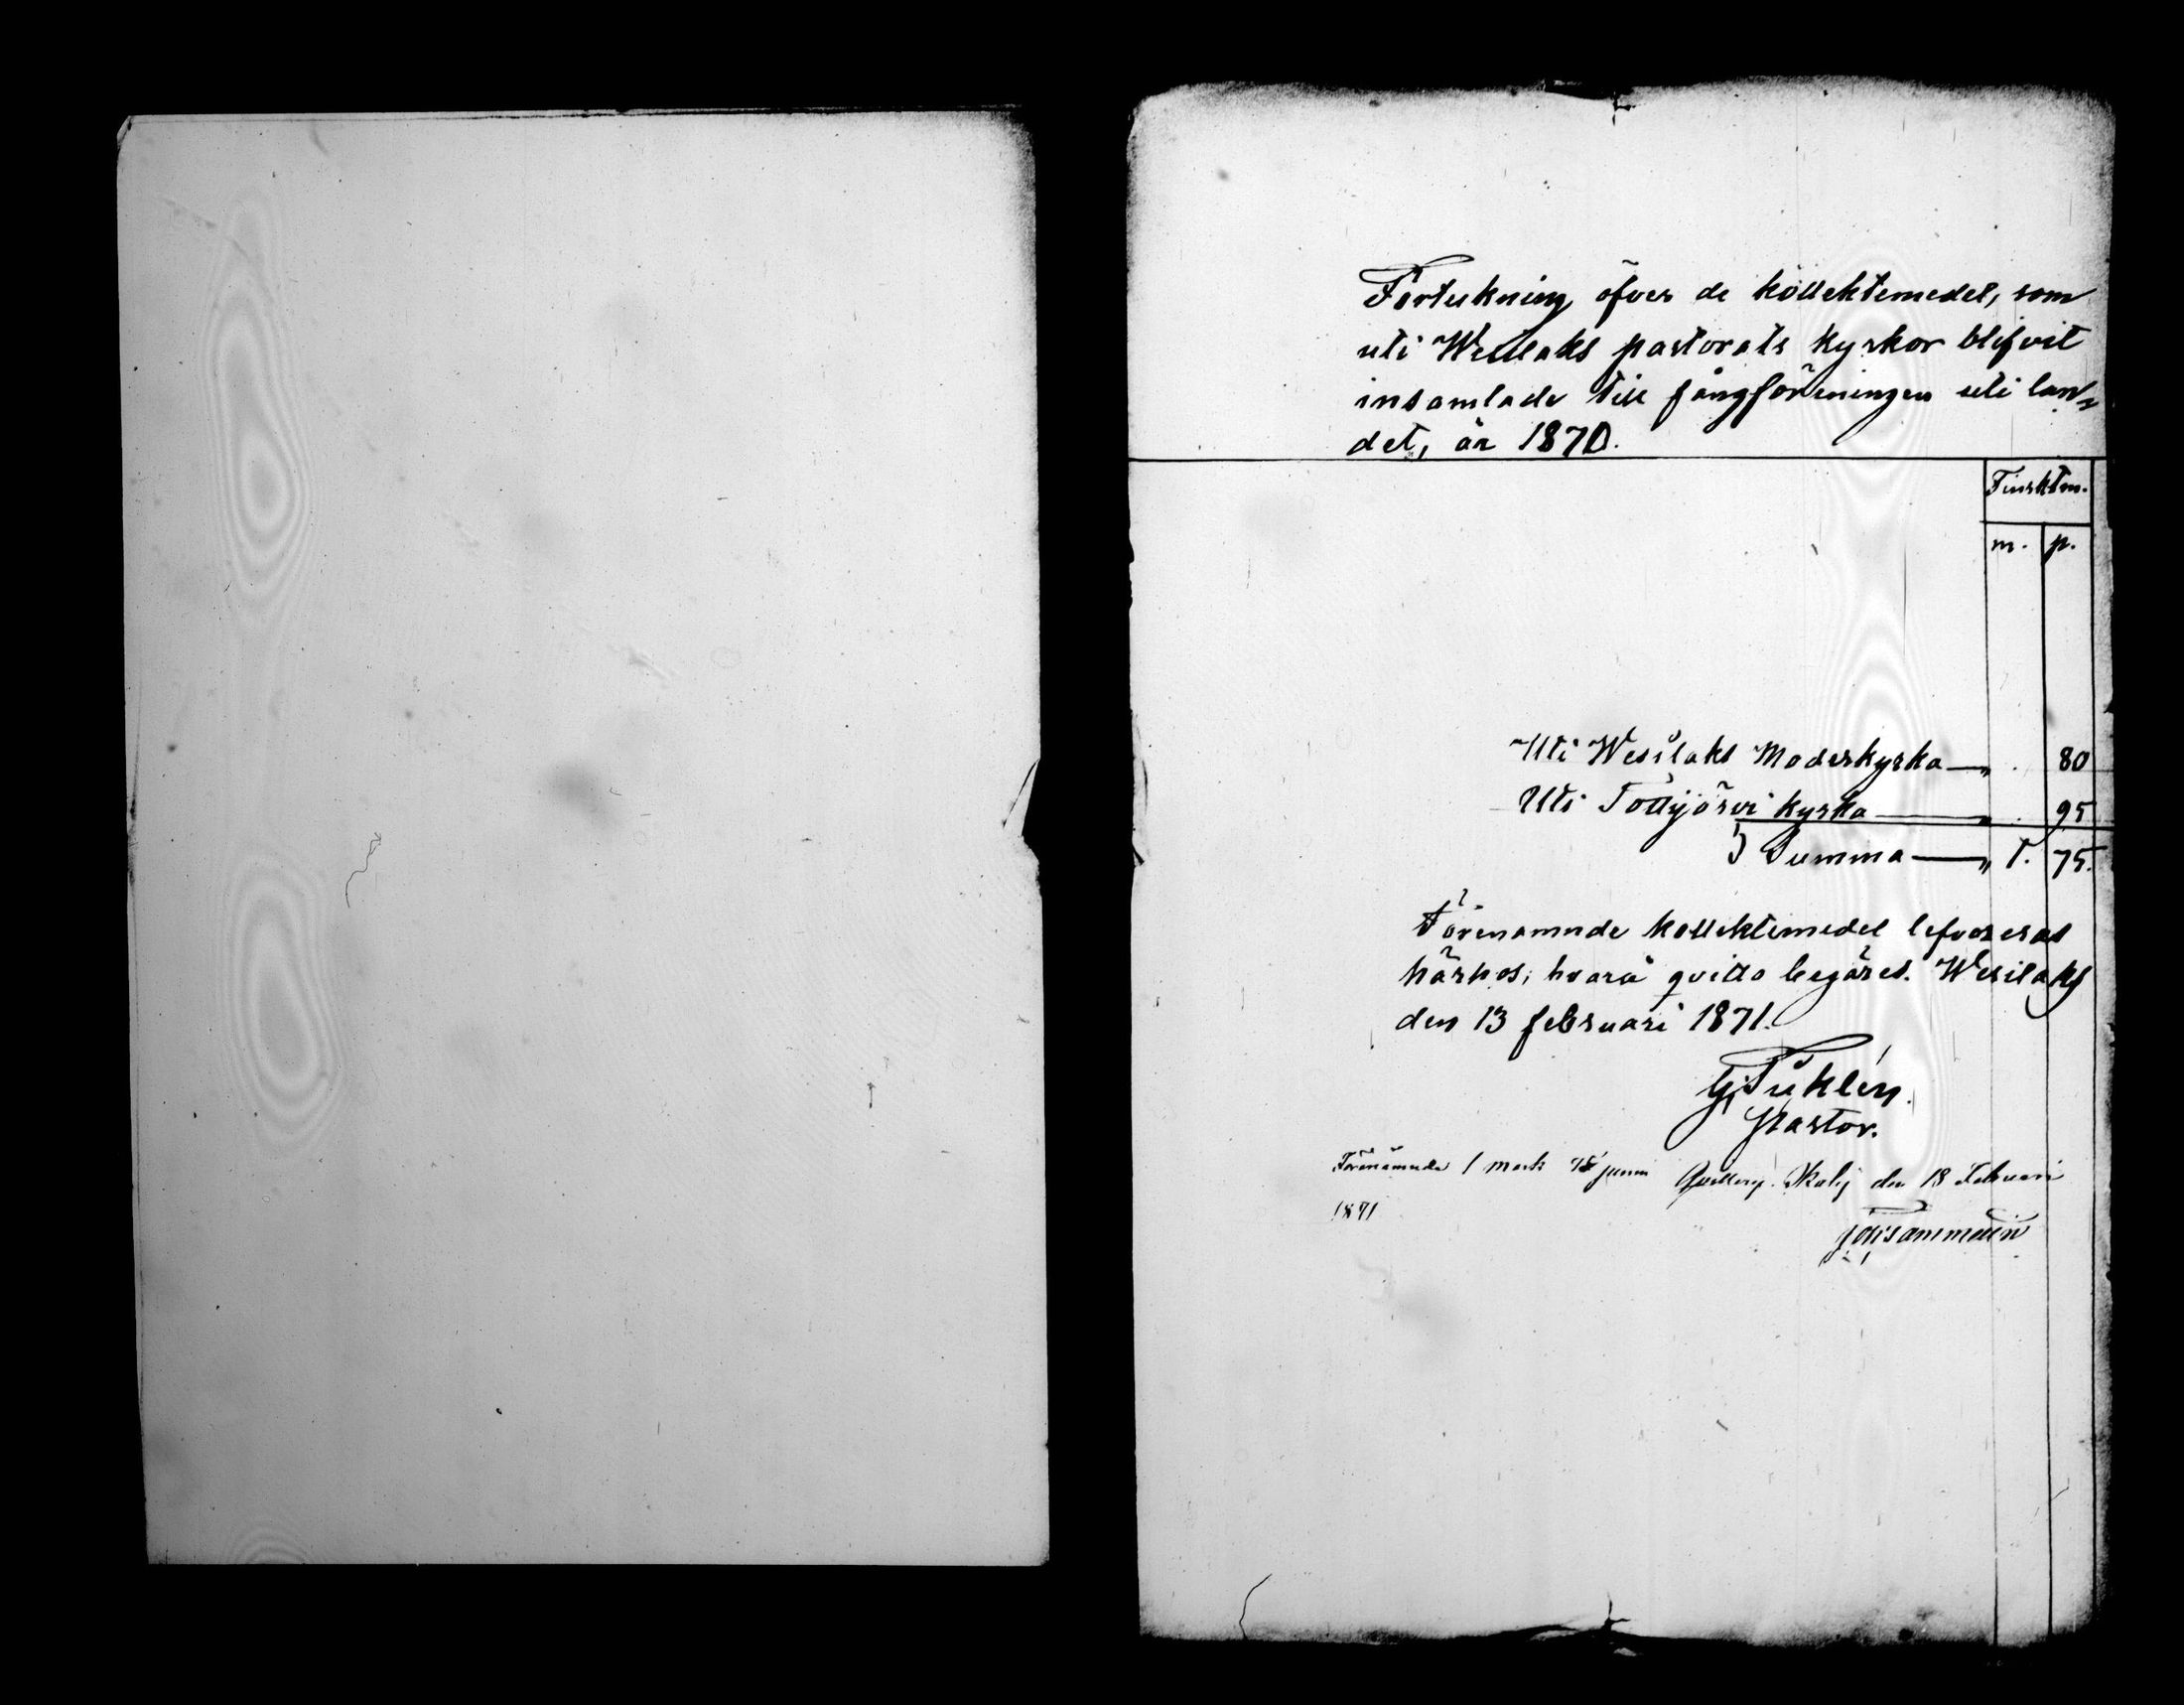 Förtekning öfver de kollektemedel, som
uti Wesilaks pastorats kyrkor blifvit
insamlade till fångföreningen uti lan-
det, år 1870.
Finsktm.
m. p.
Uti Wesilaks Moderkyrka — „ . 80
Uti Tottijärvi kyrka — „ . 95
Summa — „ 1. 75.
Förenämnde kollektemedel lefvereras
härhos; hvarå qvitto begäres. Wesilaks
den 13 februari 1871.
G. Tuklén.
Pastor.
Förenämnde 1 mark 75 penni den 18 Februari
1871